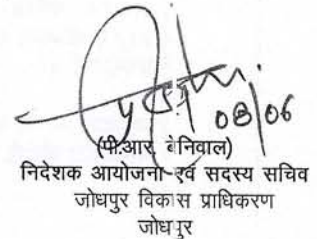 08/06
(पी.आर. बेनिवाल)
निदेशक आयोजना एवं सदस्य सचिव
जोधपुर विकास प्राधिकरण
जोधपुर